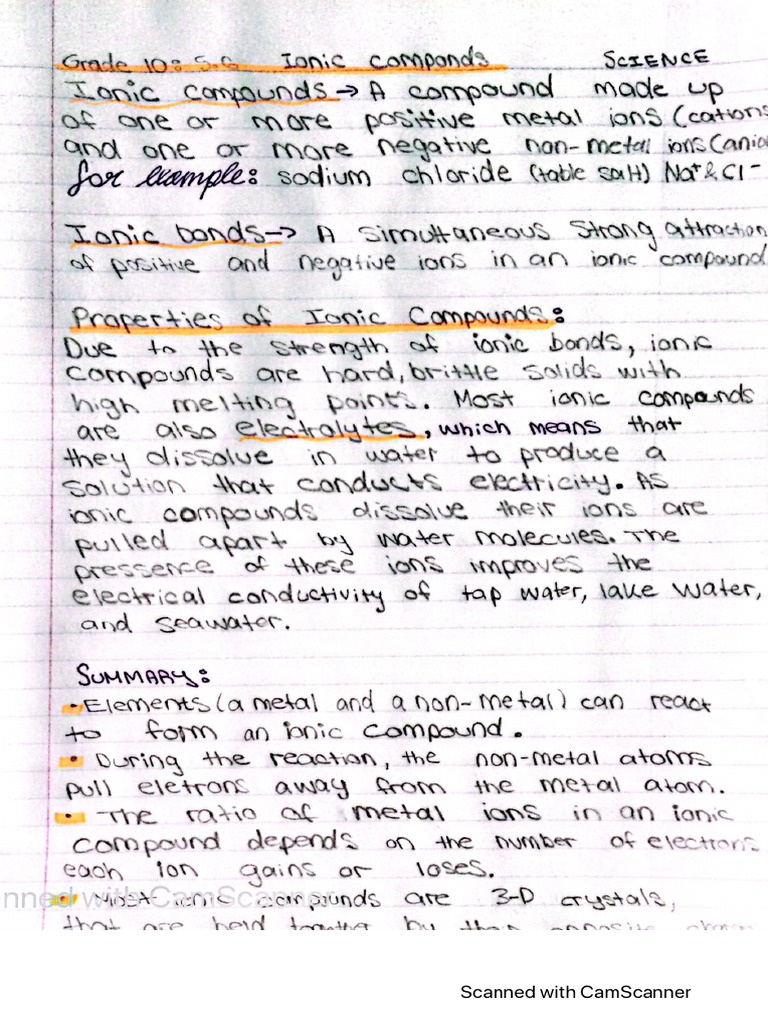 Grade 10: 5.6 Ionic componds SCIENCE
Ionic compounds → A compound made up
of one or more positive metal ions (cations
and one or more negative non-metal ions (anio
for example: sodium chloride (table salt) Na⁺ & Cl⁻
Ionic bonds → A simultaneous strong attraction
of positive and negative ions in an ionic compound
Properties of Ionic Compounds:
Due to the strength of ionic bonds, ionic
compounds are hard, brittle solids with
high melting points. Most ionic compounds
are also electrolytes, which means that
they dissolve in water to produce a
solution that conducts electricity. As
ionic compounds dissolve their ions are
pulled apart by water molecules. The
pressence of these ions improves the
electrical conductivity of tap water, lake water,
and seawater.
SUMMARY:
• Elements (a metal and a non-metal) can react
to form an ionic compound.
• During the reaction, the non-metal atoms
pull eletrons away from the metal atom.
• The ratio of metal ions in an ionic
compound depends on the number of electrons
each ion gains or loses.
• Most ionic compounds are 3-D crystals,
that are held together by their opposite
nned with CamScanner
Scanned with CamScanner